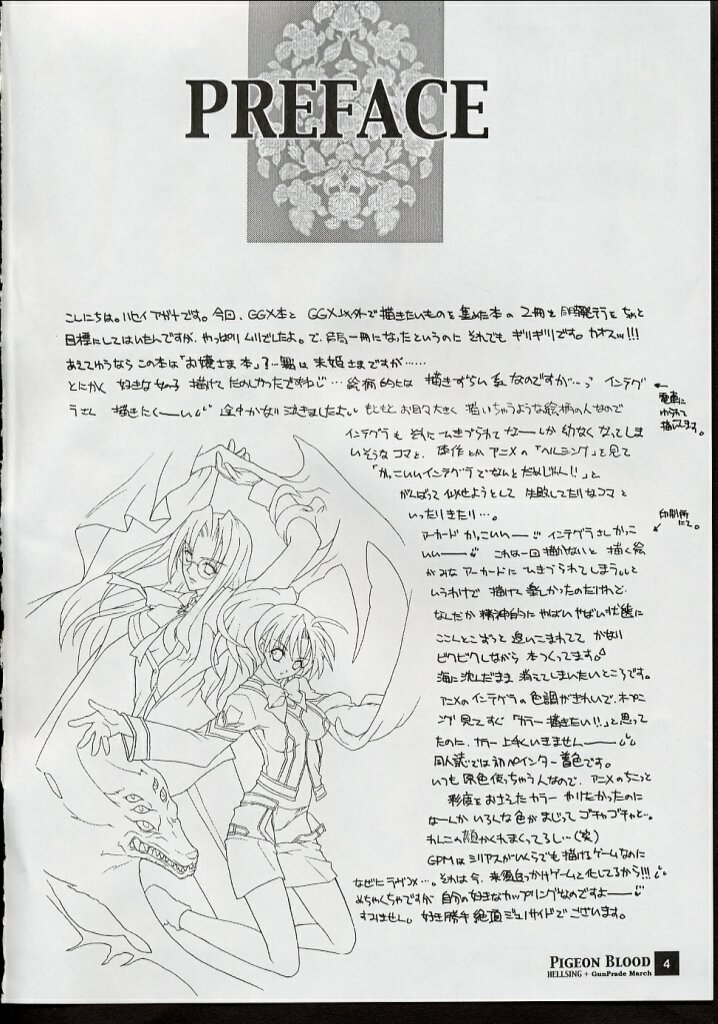 PREFACE
こんにちは。ハセイアガナです。今回、GGX本と GGX以外で描きたいものを集めた本の2冊を同時発行ラとちょと
目標にしてはいたんですが、やっぱりムリでしたよ。で、結局一冊になったというのに それでもギリギリです。カオスッ!!!
あえてゆうなら この本は「お嬢さま本」?…
とにかく 好きな女の子 描けて たのしかったですねじ…絵柄的には 描きずらい系なのですが…っ インテグ
ラさん 描きたくーい 途中かなり泣きましたよ。もともと お目々大きく 描いちゃうような絵柄の人なので
電車に
ゆられて
描いてます。
インテグラも それにひきずられて なーんか幼なくなってしま
いそうなコマと、原作とか アニメの「ヘルシング」を見て
「かっこいいインテグラでなんとだめじゃん!!」と
がんばって似せようとして 失敗してたりなコマと
いったりきたり…。
印刷所
にて。
アーカード かっこいいー インテグラさん かっこ
いいー これは一回描かないと 描く絵
がみな アーカードに ひきずられてしまうと
いうわけで 描けて楽しかったのだけれど、
なんだか 精神的に やばいやばい状態に
とことこずっと 追いこまれてて かなり
ビクビクしながら 本つくってます。
海に沈んだまま 消えてしまいたいところです。
アニメの インテグラの 色調がきれいで、オープニ
ング 見てすぐ「カラー描きたい!!」と思って
たのに、カラー 上手くいきませんー
同人誌では初ペインター着色です。
いつも 原色使っちゃう人なので、アニメのちょっと
彩度をおさえたカラー やりたかったのに
なーんか いろんな色がまじって ゴチャゴチャと…。
わんこの顔かくれまくってるし…(笑)
GPMは シリアスがいくらでも描けるゲームなのに
なぜにラヴコメ…。それは今、来須追っかけゲームと化してるから!!!
めちゃくちゃですが 自分の好きなカップリングなのですよー
すみません。好き勝手 絶頂ジェノサイドでございます。
PIGEON BLOOD
HELLSING + GunPrade March
4